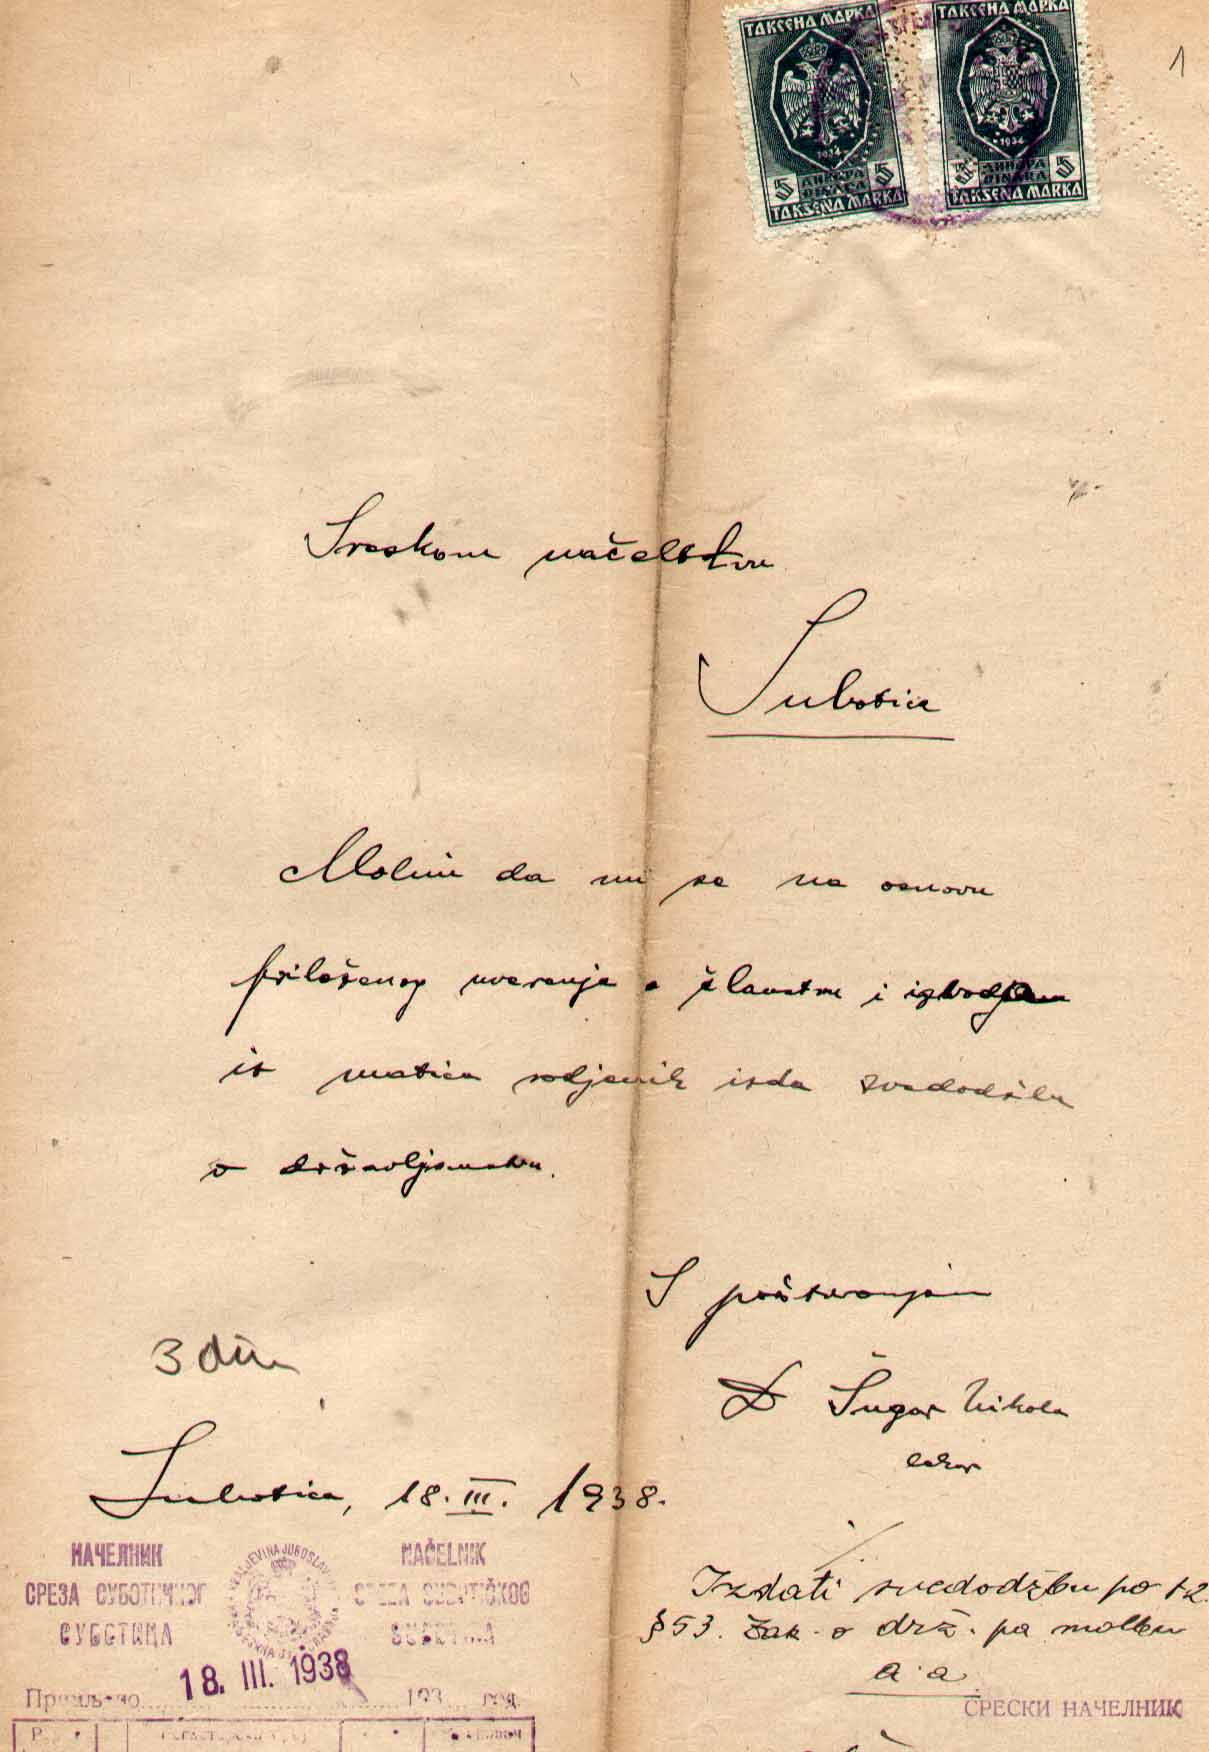 ТАКСЕНА МАРКА
1934
5 ДИНАРА 5
DINARA
TAKSENA MARKA
ТАКСЕНА МАРКА
1934
5 ДИНАРА 5
DINARA
TAKSENA MARKA
1
Sreskom načelstvu
Subotica
Molim da mi se na osnovu
priloženog uverenja o članstvu i izvodjem
iz matica rodjenih izda svedodžbu
o državljanstvu.
S poštovanjem
3 din
Dr Šugar Nikola
lekar
Subotica, 18. III. 1938.
НАЧЕЛНИК
СРЕЗА СУБОТИЧКОГ
СУБОТИЦА
NAČELNIK
SREZA SUBOTIČKOG
SUBOTICA
Izdati svedodžbu po t. 2.
§ 53. Zak. o drž. pa molbu
a. a.
18. III. 1938
Примљено 193 год.
СРЕСКИ НАЧЕЛНИК